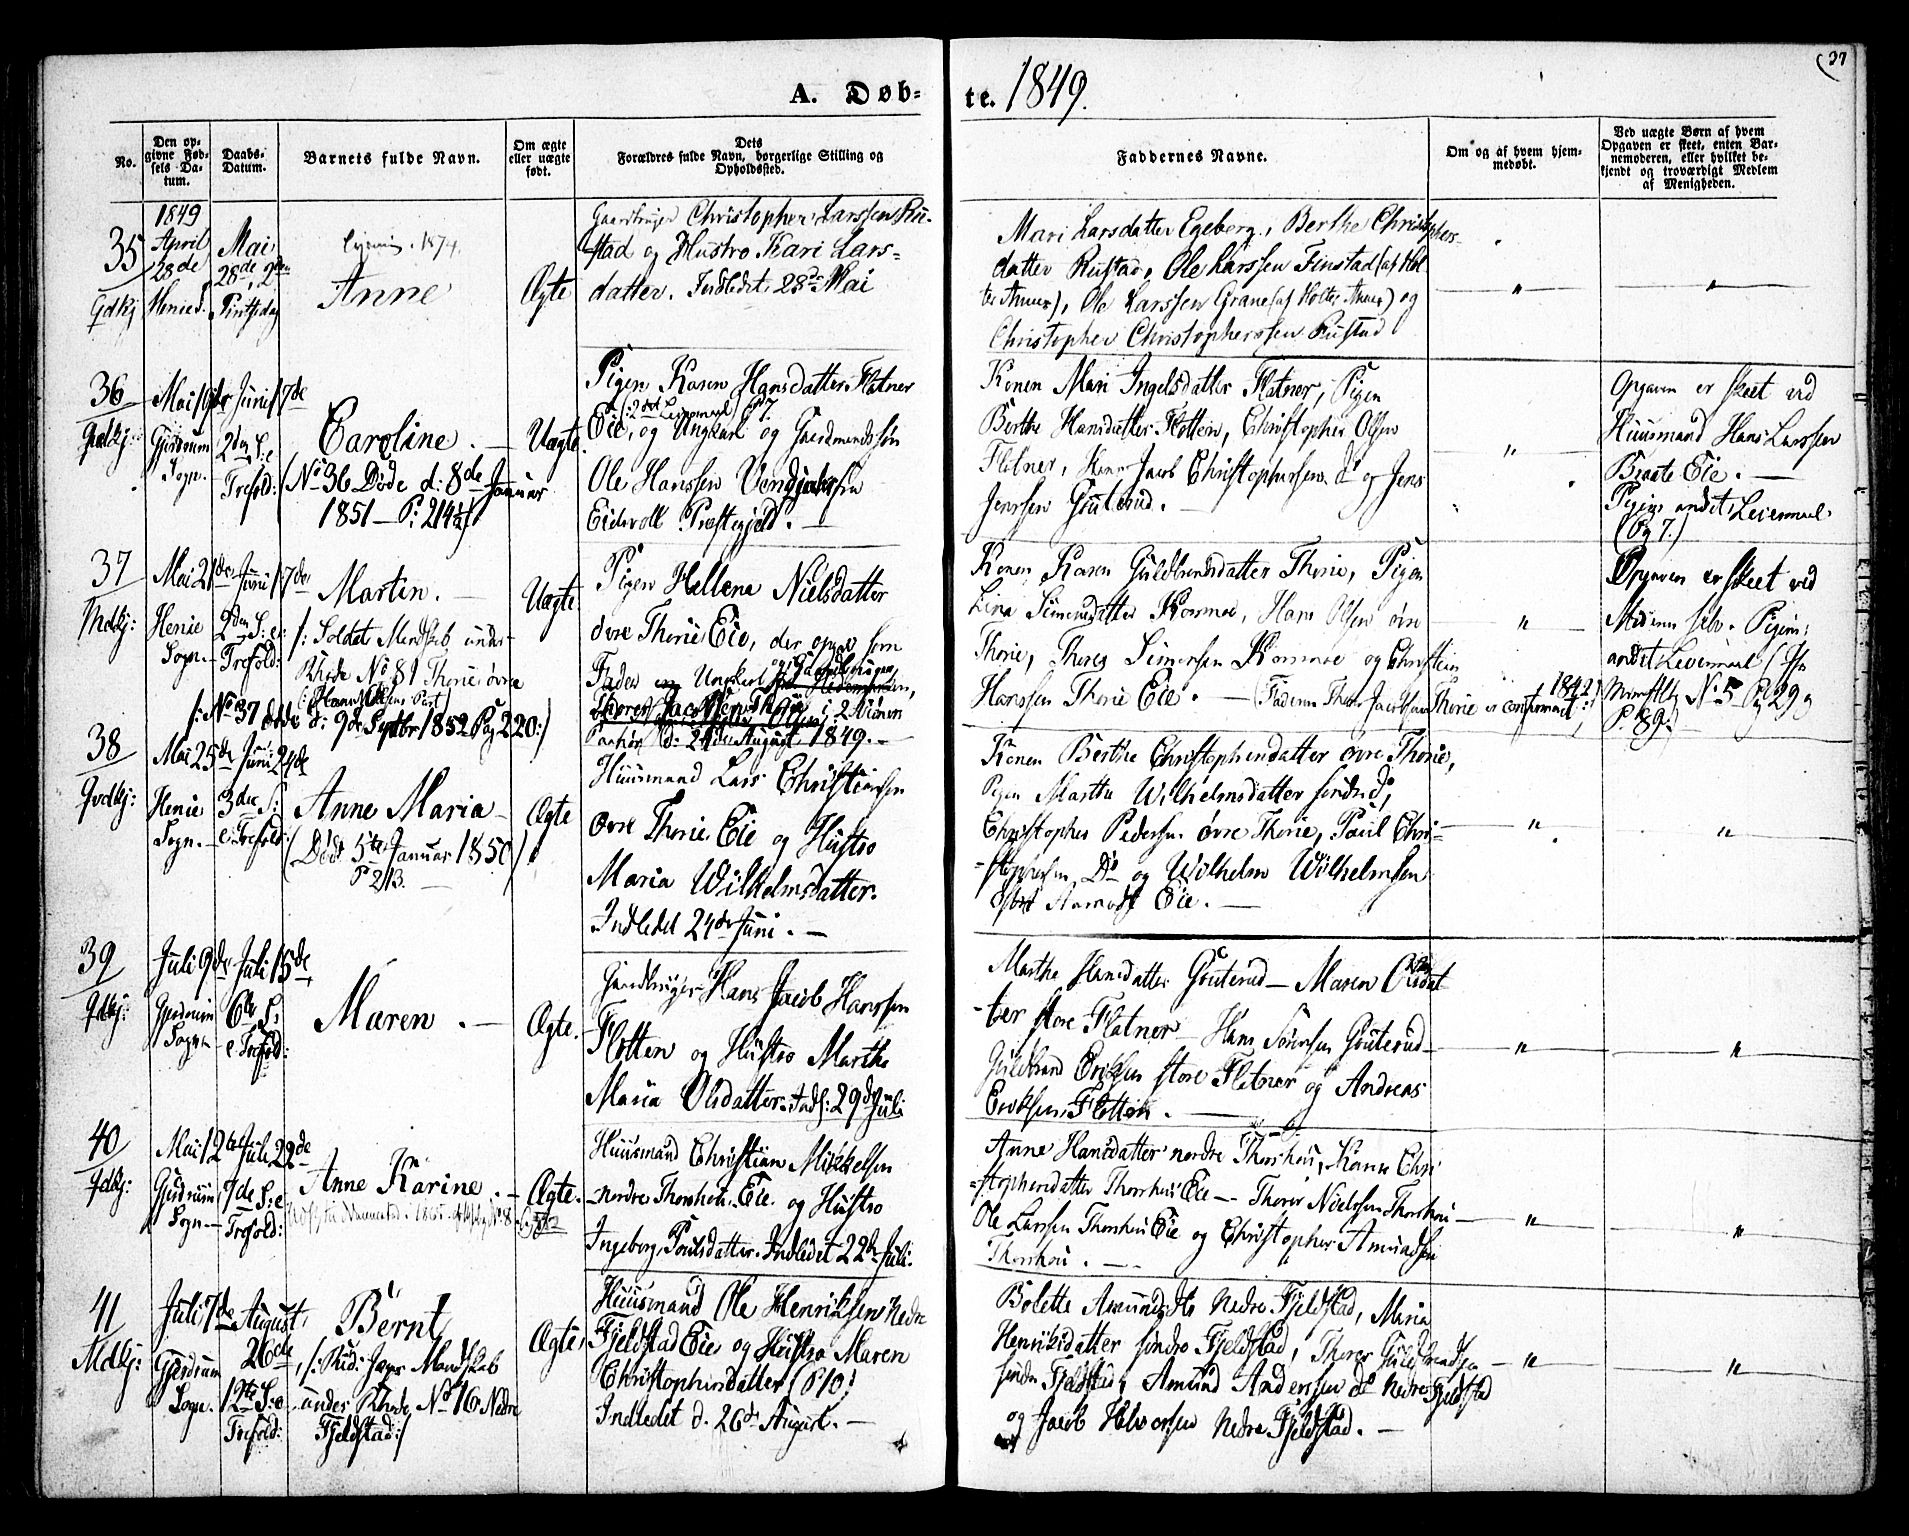 37
A. Døb-
te. 1849.
No.
Den op-
givne Fød-
sels Da-
tum.
Daabs-
Datum.
Barnets fulde Navn.
Om ægte
eller uægte
født.
Dets
Forældres fulde Navn, borgerlige Stilling og
Opholdssted.
Faddernes Navne.
Om og af hvem hjem-
medøbt.
Ved uægte Børn af hvem
Opgaven er skeet, enten Bar-
nemoderen, eller hvilket be-
kjendt og troværdigt Medlem
af Menigheden.
35
Qdkj
1849
April
28de
Henie S.
Mai
28de, 2den
Pintsedag
1874.
Anne
Ægte
Gaardbruger Christopher Larssen Ru-
stad og Hustro Kari Lars-
datter. Indledet 28de Mai
Mari Larsdatter Egeberg, Berthe Christophers-
datter Rustad, Ole Larssen Finstad (af Hol-
ter Annex), Ole Larssen Grane (af Holter Annex) og
Christopher Christopherssen Rustad
"
"
36
Qvdkj:
Mai
Gjerdrum
Sogn.
Juni 17de
2den S: e
Trefold:
Caroline. —
(No 36 Døde d: 8de Januar
1851 — P: 214
Uægte.
Pigen Karen Hansdatter Flatner
(:2det Leiermaal)
Eie, og Ungkarl og Gaardmandssøn
Ole Hanssen
Eidsvoll Præstegjeld. —
Konen Mari Ingelsdatter Flatner, Pigen
Berthe Hansdatter Flotten, Christopher Olsen
Flatner, Hans Jacob Christophersen do og Jens
Jenssen Gruterud. —
"
Opgaven er skeet ved
Huusmand Hans Larssen
Braate Eie. —
Pigens andet Leiermaal
(Pag 7.)
37
Mdkj:
Mai 21de
Henie
Sogn. —
Juni 17de
2den S: e:
Trefold:
Martin. —
/: Soldat Mandskab under
Rhode No 81 Thorie øvre
/: No 37 døde d: 9de Septbr 1852 Pag 220:/
Uægte.
Pigen Hellene Nielsdatter
øvre Thorie Eie, der opgav som
Fader Ungkarl og Gaardbruger
Thorer Jacobsen Thorie i 2 Vidners
Paahør d: 24de August 1849. —
Konen Karen Guldbrandsdatter Thorie, Pigen
Lina Simensdatter Kommoe, Hans Olsen øvre
Thorie, Thores Simensen Kommoe og Christian
Hanssen Thorie Eie. — (Faderen Thorer Jacobsen Thorie er confirmeret 1842)
"
Opgaven er skeet ved
Moderen selv. Pigens
andet Leiermaal
No 5 Pag 29 og
P. 89.
38
Qvdkj:
Mai 25de
Henie
Sogn. —
Juni 24de
3die S:
e: Trefold:
Anne Maria —
(Døde 5te Januar 1850)
P 213. —
Ægte
Huusmand Lars Christiansen
øvre Thorie Eie og Hustro
Maria Wilhelmsdatter.
Indledet 24de Juni. —
Konen Berthe Christophersdatter øvre Thorie,
Pigen Martha Wilhelmsdatter søndre do,
Christopher Pedersen øvre Thorie, Paul Chri-
stophersen Do og Wilhelm Wilhelmsen
Eie. —
"
"
39
Qdkj:
Juli 9de
Gjerdrum
Sogn —
Juli 15de
6te S:
e Trefold:
Maren. —
Ægte.
Gaardbruger Hans Jacob Hanssen
Flotten og Hustro Marthe
Maria Olsdatter. Indl: 29de Juli
Marthe Hansdatter Gruterud — Maren Olsdat-
ter store Flatner — Hans Sørensen Gruterud —
Guldbrand Eriksen store Flatner og Andreas
Eriksen Flotten. —
"
"
40
Qdkj:
Mai 12te
Gjerdrum
Sogn —
Juli 22de
7de S: e
Trefold:
Anne Karine. —
Ægte.
Huusmand Christian Mikkelsen
nordre Thorshou Eie og Hustro
Ingeborg Poulsdatter. Indledet 22de Juli.
Anne Hansdatter nordre Thorshou, Karen Chri-
stophersdatter Thorshou Eie — Thorer Nielssen Thorshou
Ole Larssen Thorshou Eie og Christopher Amundsen
Thorshou. —
"
"
41
Mdkj:
Juli 7de
Gjerdrum
Sogn.
August
26de
12te S: e
Trefold:
Bernt
/: Rid: Jæger Mandskab
under Rhode No 16 Nedre
Fjeldstad:/
Ægte
Huusmand Ole Henriksen Nedre
Fjeldstad Eie og Hustro Maren
Christophersdatter (P 10)
Indledet d. 26de August. —
Bolette Amundsdtr Nedre Fjeldstad, Maria
Henriksdatter søndre Fjeldstad, Thorer Guldbrandsen
søndre Fjeldstad, Amund Andersen do Nedre Fjeldstad
og Jacob Halvorsen Nedre Fjeldstad. —
"
"